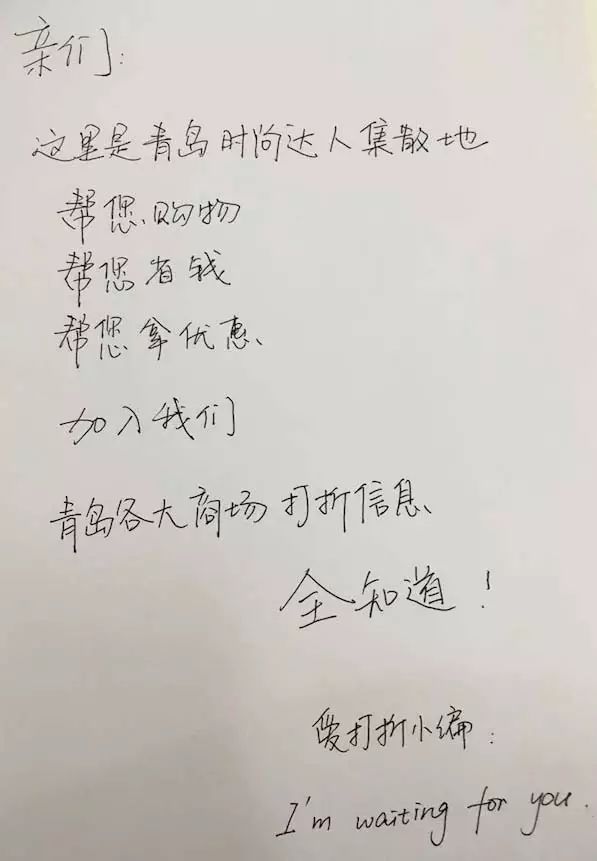 亲们:
这里是青岛时尚达人集散地
帮您购物
帮您省钱
帮您拿优惠
加入我们
青岛各大商场打折信息
全知道!
爱打折小编:
I'm waiting for you.